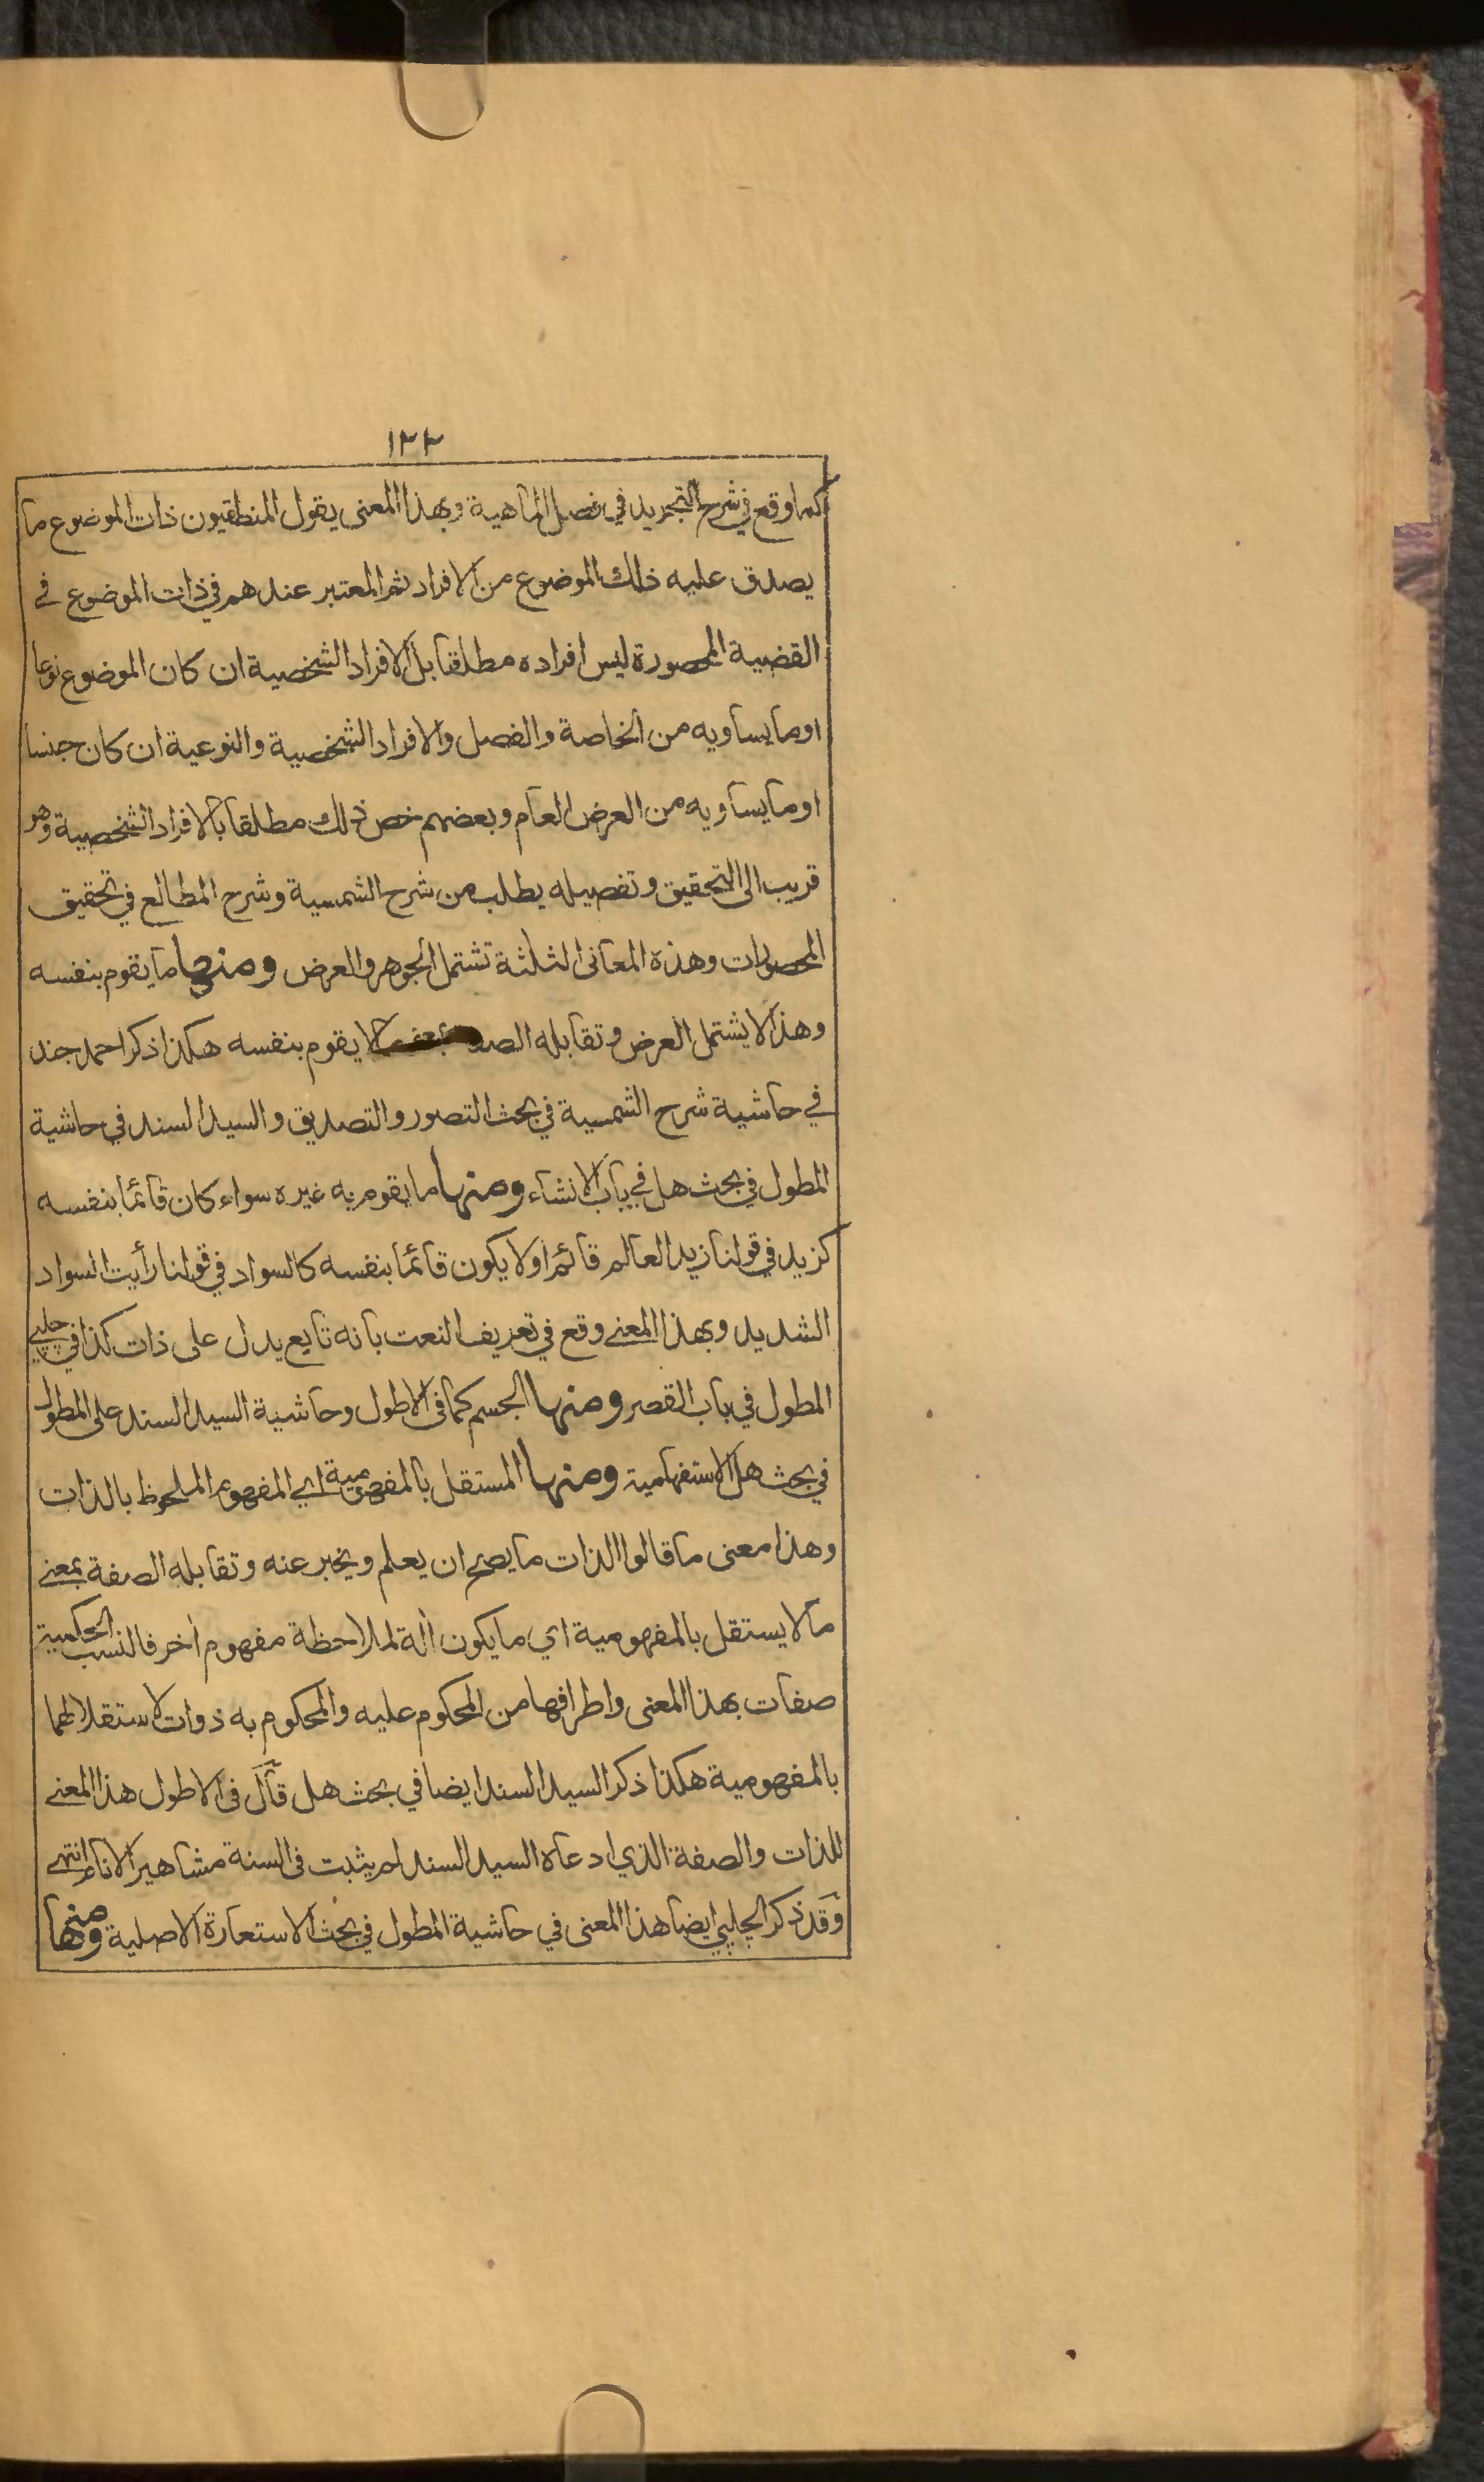 ١٢٢
كما وقع في شرح التجريد في فصل الماهية وبهذا المعنى يقول المنطقيون ذات الموضوع ما
يصدق عليه ذلك الموضوع من الافراد ثم المعتبر عندهم في ذات الموضوع في
القضية المحصورة ليس افراده مطلقا بل الافراد الشخصية ان كان الموضوع نوعا
او ما يساويه من الخاصة والفصل والافراد الشخصية والنوعية ان كان جنسا
او ما يساويه من العرض العام وبعضهم خص ذلك مطلقا بالافراد الشخصية وهو
قريب الى التحقيق وتفصيله يطلب من شرح الشمسية وشرح المطالع في تحقيق
المحصورات وهذه المعانى الثلثة تشتمل الجوهر والعرض ومنها ما يقوم بنفسه
وهذا لا يشتمل العرض وتقابله لا يقوم بنفسه هكذا ذكر احمد جند
في حاشية شرح الشمسية في بحث التصور والتصديق والسيد السند في حاشية
المطول في بحث هل في باب الانشاء ومنها ما يقوم به غيره سواء كان قائما بنفسه
كزيد في قولنا زيد العالم قائم او لا يكون قائما بنفسه كالسواد في قولنا رأيت السواد
الشديد وبهذا المعنے وقع في تعريف النعت بانه تابع يدل على ذات كذا في چلپي
المطول في باب القصر ومنها الجسم كما في الاطول وحاشية السيد السند على المطول
في بحث هل الاستفهامية ومنها المستقل بالمفهومية اي المفهوم الملحوظ بالذات
وهذا معنى ما قالوا الذات ما يصح ان يعلم ويخبر عنه وتقابله الصفة بمعنے
ما لا يستقل بالمفهومية اي ما يكون آلة لملاحظة مفهوم آخر فالنسب الحكمية
صفات بهذا المعنى واطرافها من المحكوم عليه والمحكوم به ذوات لاستقلالهما
بالمفهومية هكذا ذكر السيد السند ايضا في بحث هل قال في الاطول هذا المعنے
للذات والصفة الذي ادعاه السيد السند لم يثبت في السنة مشاهير الانام انتهى
وقد ذكر الچلپي ايضا هذا المعنى في حاشية المطول في بحث الاستعارة الاصلية ومنها